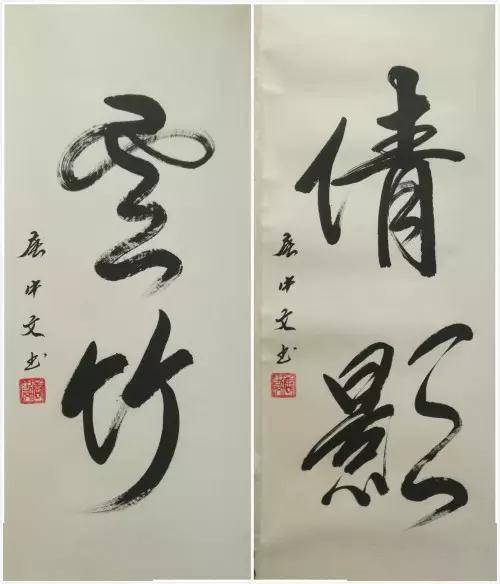 雲竹
中文书
倩影
中文书